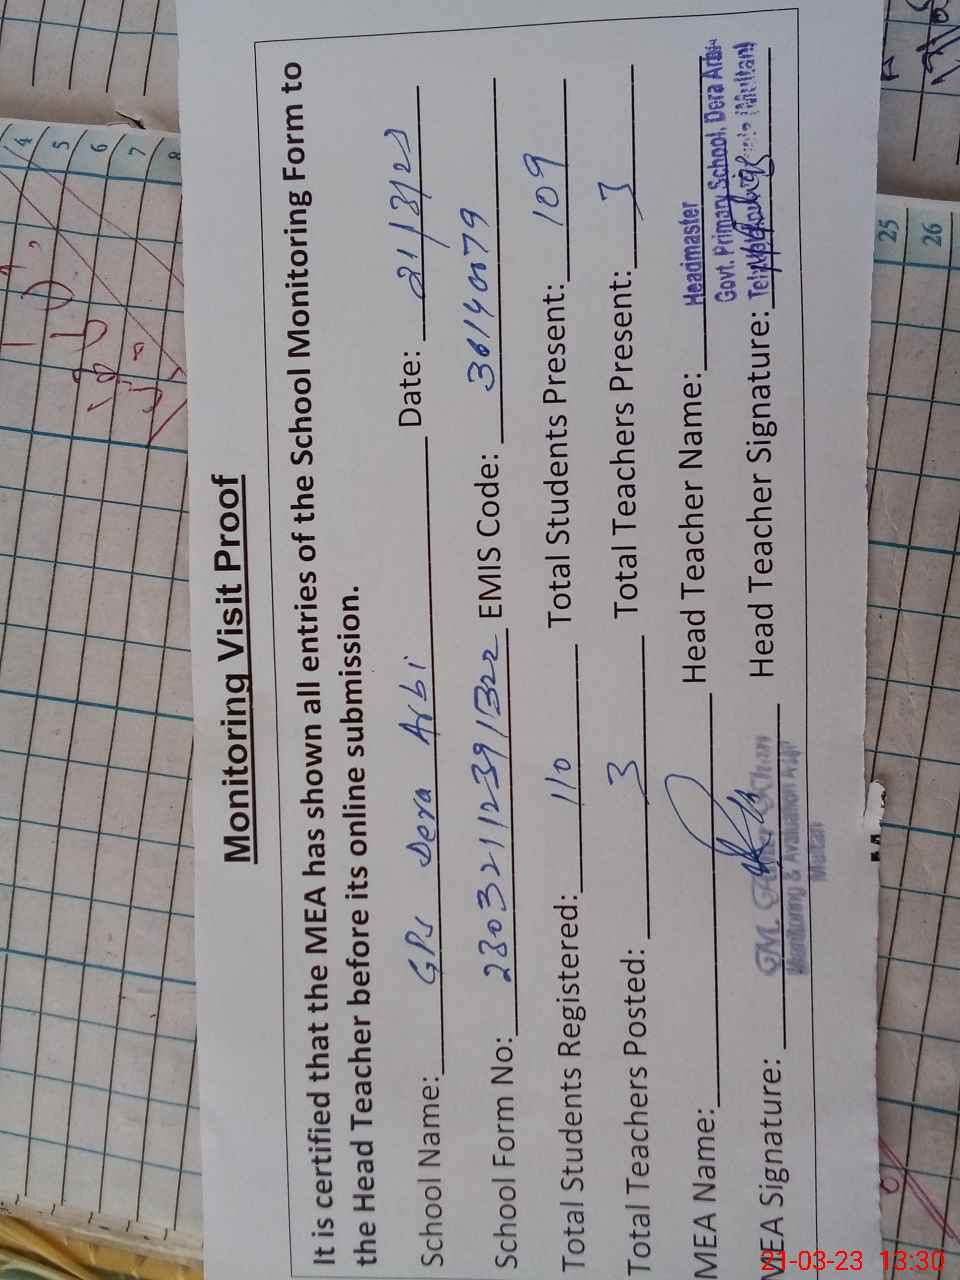 Monitoring Visit Proof
It is certified that the MEA has shown all entries of the School Monitoring Form to
the Head Teacher before its online submission.
School Name: GPS Dera Arbi Date: 21/3/23
School Form No: 23032112391322 EMIS Code: 36140079
Total Students Registered: 110 Total Students Present: 109
Total Teachers Posted: 3 Total Teachers Present: 3
MEA Name: Head Teacher Name: Headmaster
Govt. Primary School, Dera Arbi
MEA Signature: Head Teacher Signature: (Multan)
Monitoring & Multan
4
5
6
7
8
25
26
21-03-23 13:30